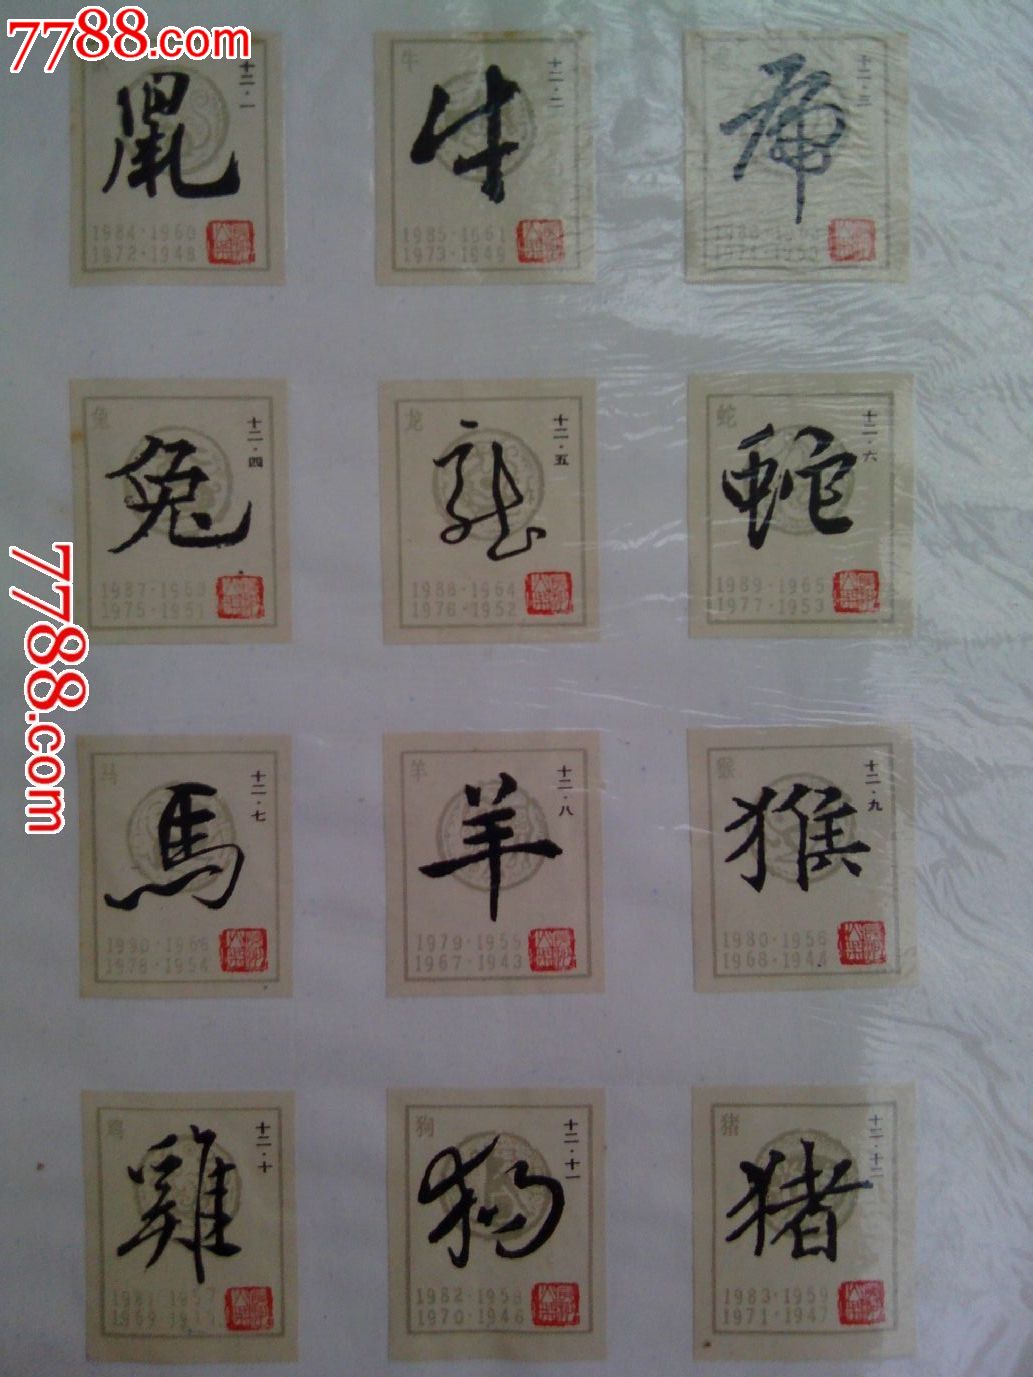 7788.com
鼠
十二·一
鼠
1984·1960
1972·1948
牛
十二·二
牛
1985·1961
1973·1949
十二·三
虎
兔
十二·四
兔
1987·1963
1975·1951
龙
十二·五
龙
1988·1964
1976·1952
蛇
十二·六
蛇
1989·1965
1977·1953
7788.com
马
十二·七
馬
1990·1966
1978·1954
羊
十二·八
羊
1979·1955
1967·1943
猴
十二·九
猴
1980·1956
1968·1944
鸡
十二·十
雞
1981·1957
狗
十二·十一
狗
1982·1958
1970·1946
猪
十二·十二
猪
1983·1959
1971·1947